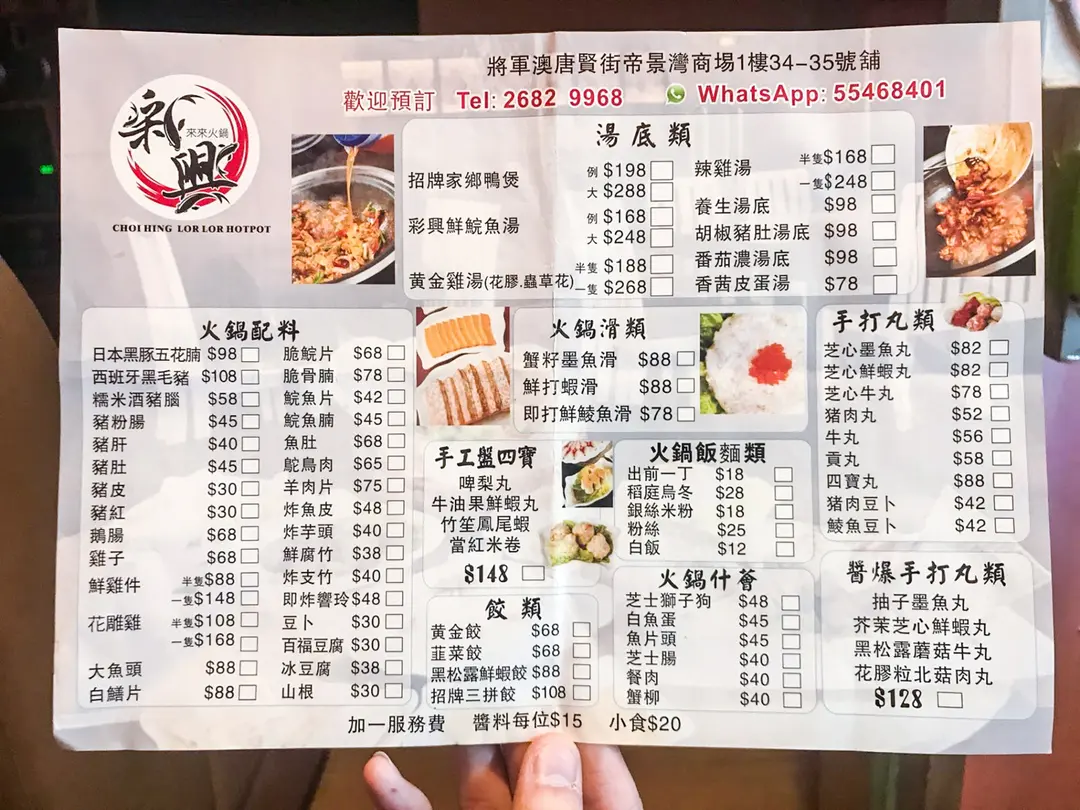 將軍澳唐賢街帝景灣商場1樓34-35號舖
歡迎預訂 Tel: 2682 9968 WhatsApp: 55468401
新興
來來火鍋
CHOI HING LOR LOR HOTPOT
湯底類
招牌家鄉鴨煲 例 $198
大 $288
彩興鮮鯇魚湯 例 $168
大 $248
黃金雞湯(花膠.蟲草花) 半隻 $188
一隻 $268
辣雞湯 半隻 $168
一隻 $248
養生湯底 $98
胡椒豬肚湯底 $98
番茄濃湯底 $98
香茜皮蛋湯 $78
火鍋配料
日本黑豚五花腩 $98
西班牙黑毛豬 $108
糯米酒豬腦 $58
豬粉腸 $45
豬肝 $40
豬肚 $45
豬皮 $30
豬紅 $30
鵝腸 $68
雞子 $68
鮮雞件 半隻 $88
一隻 $148
花雕雞 半隻 $108
一隻 $168
大魚頭 $88
白鱔片 $88
脆鯇片 $68
脆骨腩 $78
鯇魚片 $42
鯇魚腩 $45
魚肚 $68
鴕鳥肉 $65
羊肉片 $75
炸魚皮 $48
炸芋頭 $40
鮮腐竹 $38
炸支竹 $40
即炸響玲 $48
豆卜 $30
百福豆腐 $30
冰豆腐 $38
山根 $30
火鍋滑類
蟹籽墨魚滑 $88
鮮打蝦滑 $88
即打鮮鯪魚滑 $78
手工盤四寶
啤梨丸
牛油果鮮蝦丸
竹笙鳳尾蝦
當紅米卷
$148
餃類
黃金餃 $68
韮菜餃 $68
黑松露鮮蝦餃 $88
招牌三拼餃 $108
火鍋飯麵類
出前一丁 $18
稻庭烏冬 $28
銀絲米粉 $18
粉絲 $25
白飯 $12
火鍋什薈
芝士獅子狗 $48
白魚蛋 $45
魚片頭 $45
芝士腸 $40
餐肉 $40
蟹柳 $40
手打丸類
芝心墨魚丸 $82
芝心鮮蝦丸 $82
芝心牛丸 $78
豬肉丸 $52
牛丸 $56
貢丸 $58
四寶丸 $88
豬肉豆卜 $42
鯪魚豆卜 $42
醬爆手打丸類
抽子墨魚丸
芥茉芝心鮮蝦丸
黑松露蘑菇牛丸
花膠粒北菇肉丸
$128
加一服務費 醬料每位$15 小食$20